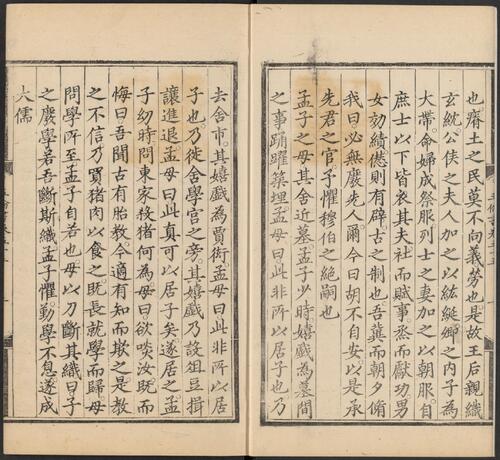 也瘠土之民莫不向義勞也是故王后親織
玄紞。公侯之夫人加之以紘綖卿之內子為
大帶。命婦成祭服列士之妻加之以朝服。自
庶士以下皆衣其夫社而賦事烝而獻功。男
女効績愆則有辟。古之制也。吾冀而朝夕脩
我曰必無廢先人爾今曰胡不自安以是承
先君之官予懼穆伯之絕嗣也
孟子之母其舍近墓。孟子少時嬉戲為墓間
之事踊躍築埋孟母曰此非所以居子也乃
去舍市。其嬉戲為賈衒。孟母曰此非所以居
子也乃徙舍學宮之旁。其嬉戲乃設俎豆揖
讓進退孟母曰此真可以居子矣遂居之。孟
子幼時問東家殺猪何為母曰欲啖汝既而
悔曰吾聞古有胎教。今適有知而欺之。是教
之不信乃買猪肉以食之。既長就學而歸。母
問學所至孟子自若也。母以刀斷其織曰子
之廢學若吾斷斯織孟子懼。勤學不息遂成
大儒